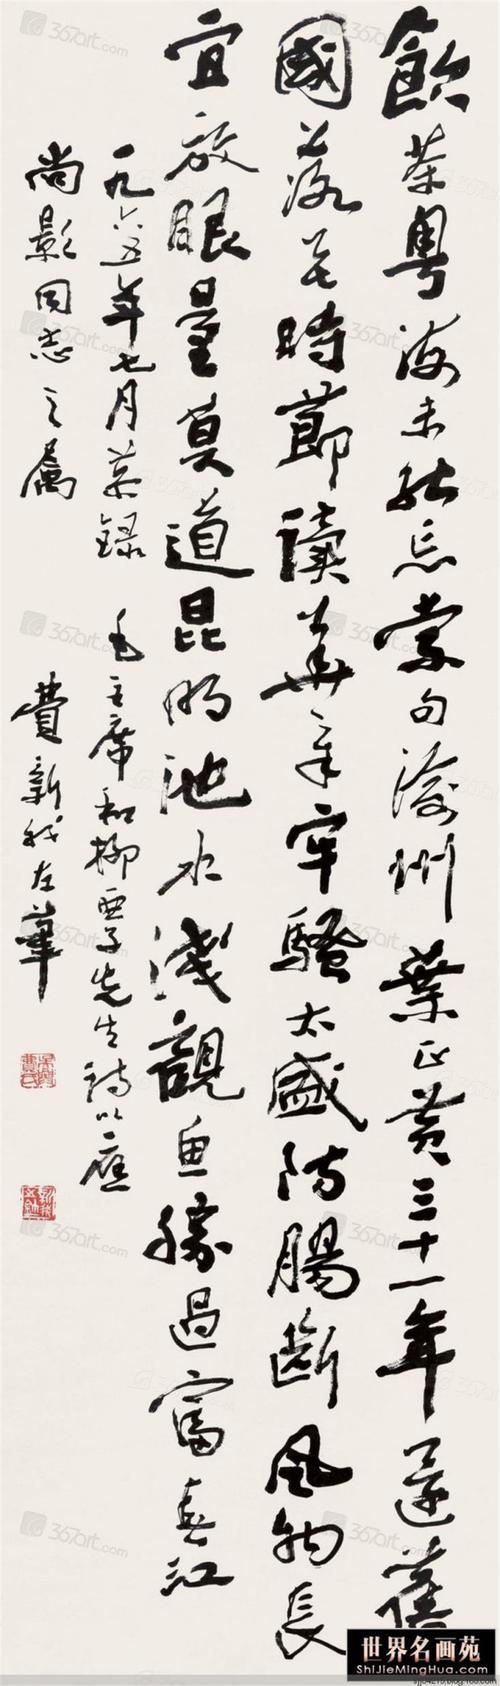 飲茶粵海未能忘索句渝州葉正黃三十一年還舊
國落花時節讀華章牢騷太盛防腸斷風物長
宜放眼量莫道昆明池水淺觀魚勝過富春江
一九六五年七月恭録 毛主席和柳亞子先生詩以應
尚影同志之屬 費新我左筆
367art.com
世界名画苑
ShiJieMingHua.com